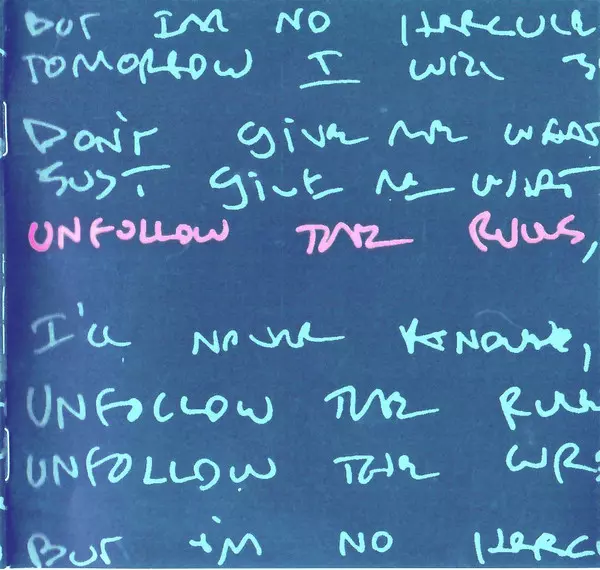 BUT I'M NO HERCULE
TOMORROW I WILL B
DON'T GIVE ME WHAT
JUST GIVE ME WHAT
UNFOLLOW THE RULES,
I'LL NEVER KNOW,
UNFOLLOW THE RULE
UNFOLLOW THE WRO
BUT I'M NO HERC